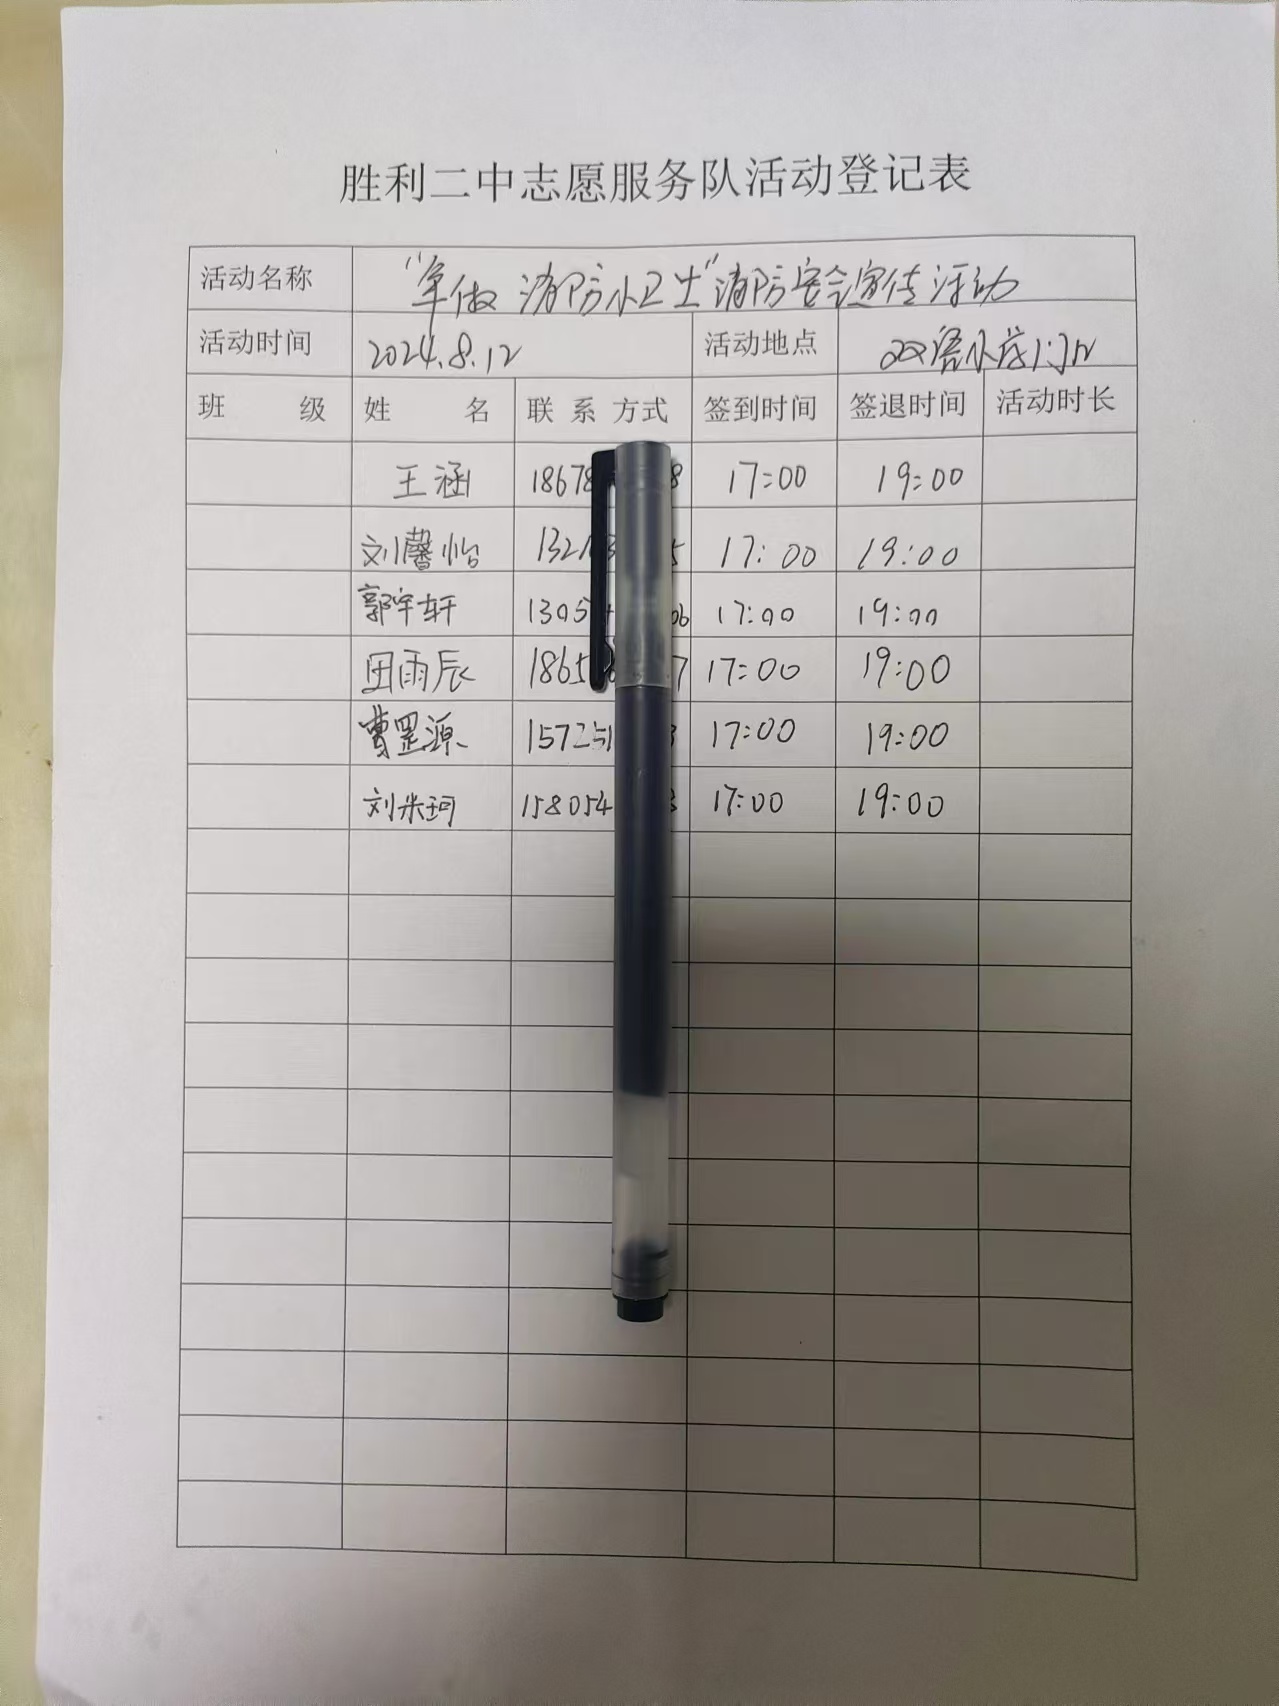 胜利二中志愿服务队活动登记表
活动名称 "争做消防小卫士"消防安全宣传活动
活动时间 2024.8.12 活动地点 门口
班 级 姓 名 联 系 方式 签到时间 签退时间 活动时长
王涵 18678 8 17:00 19:00
刘馨怡 132 5 17:00 19:00
郭宇轩 1305 06 17:00 19:00
田雨辰 1865 7 17:00 19:00
曹罡源 157251 3 17:00 19:00
刘米珂 158054 17:00 19:00